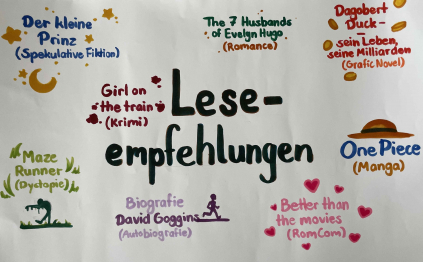 Der kleine
Prinz
(Spekulative Fiktion)
The 7 Husbands
of Evelyn Hugo
(Romance)
Dagobert
Duck –
sein Leben,
seine Milliarden
(Grafic Novel)
Girl on
the train
(Krimi)
Lese-
empfehlungen
One Piece
(Manga)
Maze
Runner
(Dystopie)
Biografie
David Goggins
(Autobiografie)
Better than
the movies
(RomCom)